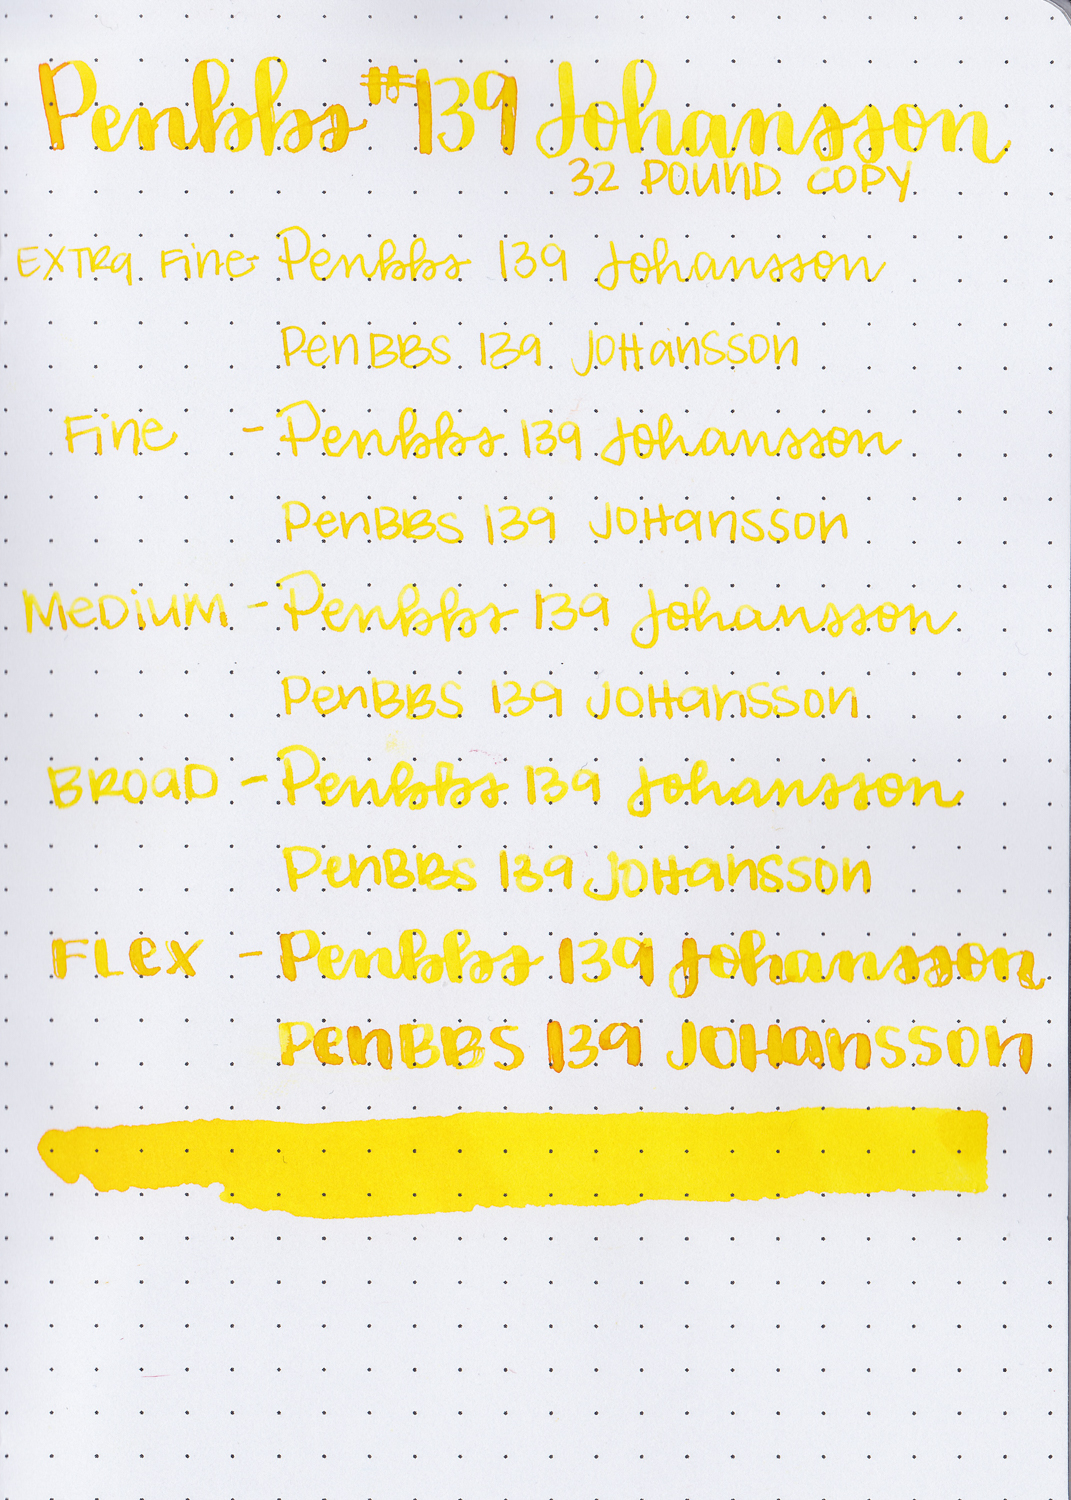 Penbbs #139 Johansson
32 POUND COPY
EXTRa Fine- Penbbs 139 Johansson
PenBBS 139 JOHansson
Fine - Penbbs 139 Johansson
PenBBS 139 JOHansson
MeDIUM - Penbbs 139 Johansson
PenBBS 139 JOHansson
BROaD - Penbbs 139 Johansson
PenBBS 139 JOHansson
FLex - Penbbs 139 Johansson
PenBBS 139 JOHansson